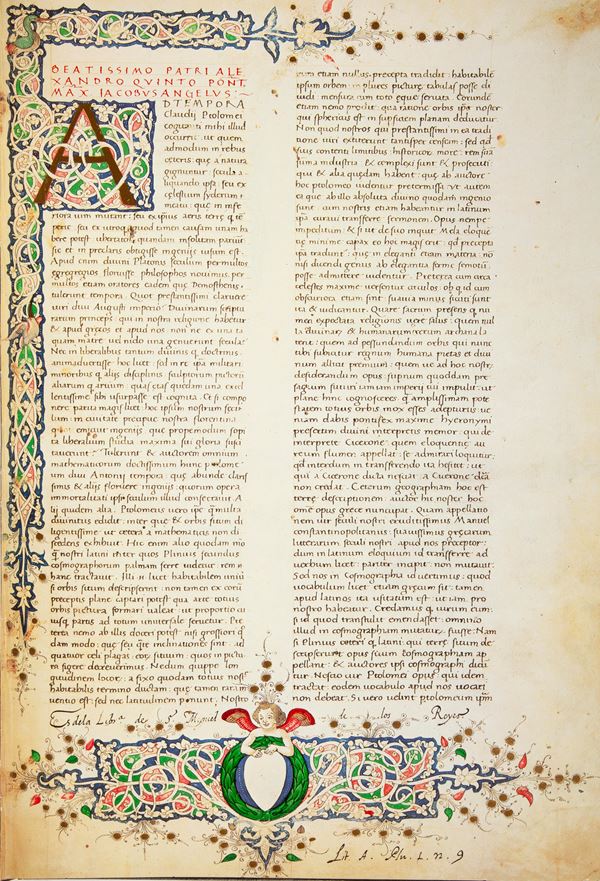 BEATISSIMO PATRI ALE
XANDRO QVINTO PONT.
MAX. IACOBVS ANGELVS:
AD TEMPORA
Claudij Ptolomei
cogitanti mihi illud
occurrit: ut quem
admodum in rebus
ceteris: que a natura
gignuntur secula a
liquando ipsa: seu ex
celestium syderum
meatu: que in infe
riora uim mutant: seu ex ipsius aeris terre q;
seu ex utroq;
bere potest ubertate, quandam insolitam
sic et in preclaris obtigisse ingenijs uisum est.
Apud enim diuini Platonis seculum permultos
egregregios floruisse philosophos nouimus. per
multos etiam oratores eadem que Demosthenis
tulerunt tempora. Quot prestantissimi claruere
uiri diui Augusti imperio? Diuinarum scriptu
rarum princeps: qui in nostra religione habetur
& apud grecos et apud nos non ne ex una ta
quam matre: uel nido una genuerunt secula?
Nec in liberalibus tantum diuinis q; doctrinis.
animaduertisse hoc licet: sed in re ipsa militari.
minoribus q; alijs disciplinis. sculptorum pictorum
aliarum q; artium: quas etas quedam una excel
lentissime sibi usurpasse est cognita. Et si compo
nere parua magis licet: hoc ipsum nostrum secu
lum: in ciuitate precipue nostra florentina
quot emicuit ingenijs: que propemodum sopi
ta liberalium studia maxima sui gloria susci
tauerunt? Tulerunt & auctorem omnium
mathematicorum doctissimum hunc ptolome
um diui Antonij tempora: que abunde claris
simis & alijs floruere ingenijs: quorum opera
immortalitati ipsi seculum illud consecrauit. A
lij quidem alia. Ptolomeus uero ipse q; multa
diuinitus edidit: inter que & orbis situm di
ligentissime: ut cetera a mathematicis non di
scedens exhibuit. Hic enim alio quodam mo
q; nostri latini inter quos Plinius secundus
cosmographorum palmam ferre uidetur rem
hanc tractauit. Illi n licet habitabilem uniuersi
orbis situm descripserint: non tamen ex eorum
preceptis plane capiari potest qua arte totius
orbis pictura formari ualeat: ut proportio cu
iusq; partis ad totum uniuersale seruetur. Pre
terea nemo ab illis doceri potest nisi grossiori quo
dam modo: que seu que inclinatione sint: ad
quatuor celi plagas: eorum situum: quos in pictu
ra figere decreuerimus. Nedum quippe lon
gitudinem locorum: a fixo quodam totius nostre
habitabilis termino ductam: que tamen rarissime in
uento est: sed nec latitudinem ponunt. Nostro
rum etiam nullus precepta tradidit: habitabilem
ipsum orbem in plures picture tabulas posse di
uidi mensura cum toto eque seruata. Eorundem
etiam nemo prodit: qua ratione orbis ipse noster
qui sphericus est in superficiem planam deducatur.
Non quod nostros qui prestantissimi in ea tradi
tione uiri extiterunt tantisper censeam: sed ad
suis contenti limitibus. historicorum more: rem suam
summa industria & complexi sunt & prosecuti:
qui & alia quedam habent: que ab auctore
hoc ptolomeo uidentur pretermissa: ut autem
et que ab illo absoluta diuino quodam ingenio
sunt: cum nostris etiam habeantur: in latinum
ipsum curaui transferre sermonem. Opus nempe
impeditum: & si ut de suo inquit Mela: eloque
tie minime capax eo hoc magis erit: quod precepta
ipsa tradunt: que in eleganti etiam materia: non
nisi dicendi genus ab elegantia ferme semotum:
posse admittere uidentur. Preterea cum circa
celestes maxime uersentur circulos ob quod cum
obscuriora etiam sint: suauia minus sicuti sunt
ita & uidicantur. Quare sacrum presens quoniam
mei expectata religionis uere salus: quem nul
la diuinarum & humanarum rerum archana la
tent: quem ad pessundandum orbis qui nunc
tibi subijcitur regnum humana pietas et diui
num allicit premium: quem ue ad hoc nostrum
desiderandum opus supnum quoddam pre
sagium futuri iam iam imperij tui impulit: ut
plane hinc cognosceres q; amplissimam pote
statem totius orbis mox esses adepturus: ue
niam dabis pontifex maxime hyeronymi
presertim diuini interpretis memor: qui de
interprete Cicerone quem eloquentie au
reum flumen appellat: se admirari loquitur.
quod interdum in transferendo ita hesitet: ut
qui a Cicerone dicta nesciat: a Cicerone dicta
non credat. Ceterum geographiam hoc est
terre descriptionem: auctor hic noster hoc
omne opus grece nuncupat. Quam appellatio
nem uir seculi nostri eruditissimus Manuel
constantinopolitanus: suauissimus grecarum
litterarum seculi nostri apud nos preceptor:
dum in latinum eloquium id transferret ad
uerbum licet: pariter inquit non mutauit.
Sed nos in Cosmographia id uertimus: quod
uocabulum licet etiam grecum sit: tamen
apud latinos ita usitatum est ut iam pro
nostro habeatur. Credamus q; uirum cum:
si id quod transtulit emendasset: omnino
illud in cosmographiam mutatur fuisse. Nam
si Plinius ceteri q; latini: qui terre situm de
scripserunt opus suum cosmographiam ap
pellant: & auctores ipsi cosmographi dicun
tur. Nescio cur Ptolomei opus: qui idem
tractat: eodem uocabulo apud nos uocari
non debeat. Si uero uelint ptolomeum ipsum
Es dela Lib.ª de S. Miguel de los Reyes
Lit. A. Plu. L. n. 9